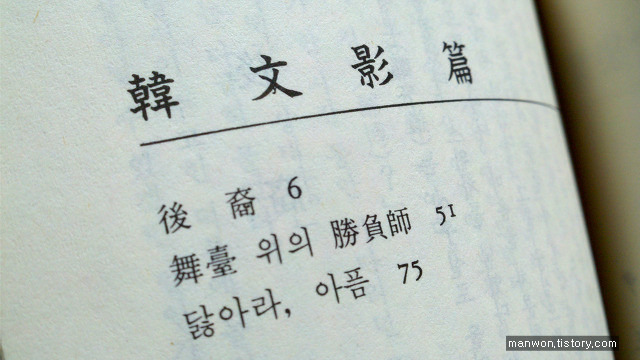 韓文影篇
後裔 6
舞臺 위의 勝負師 51
닳아라, 아픔 75
manwon.tistory.com